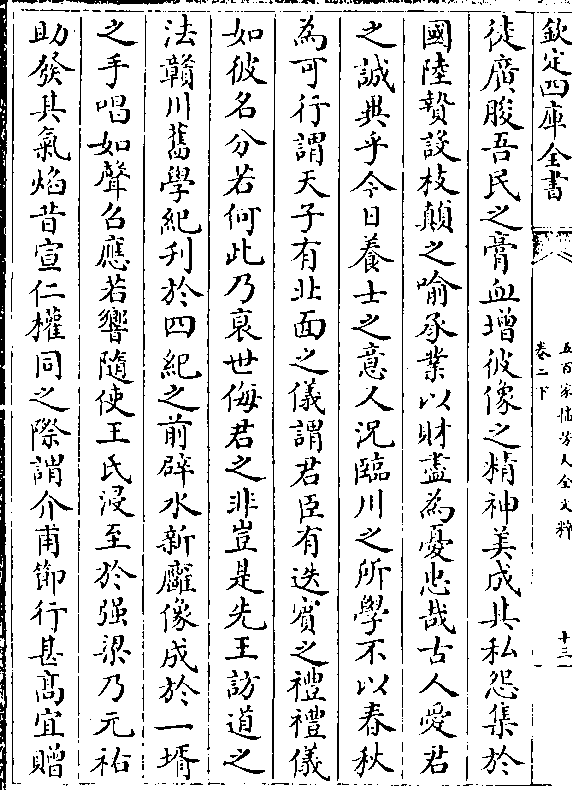 欽定四庫全書
五百家播芳大全文粹
卷二下
十三
徒廣朘吾民之膏血増彼像之精神美成其私怨集於
國陸贄設枝顛之喻承業以財盡為憂忠哉古人愛君
之誠異乎今日養士之意人况臨川之所學不以春秋
為可行謂天子有北面之儀謂君臣有迭賔之禮禮儀
如彼名分若何此乃衰世侮君之非豈是先王訪道之
法贛川舊學紀刋於四紀之前辟水新廱像成於一壻
之手唱如聲召應若響隨使王氏浸至於强梁乃元祐
助發其氣焰昔宣仁權同之際謂介甫節行甚髙宜贈